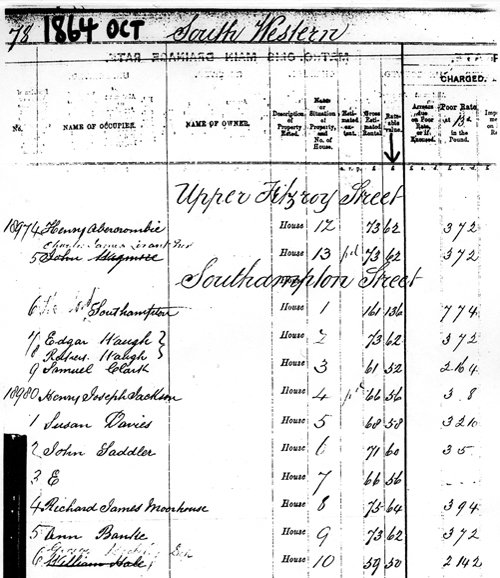 78 1864 OCT South Western
CHARGED.
No. NAME OF OCCUPIER. NAME OF OWNER. Description of Property Rated. Name or Situation of Property, and No. of House. Estimated extent. Gross Estimated Rental. Rateable value. Arrears due on Poor Rate, or if Excused. Poor Rate at in the Pound.
Upper Fitzroy Street
18974 Henny Abercrombie House 12 73 62 3 7 2
Charles James
5 John House 13 pd 73 62 3 7 2
Southampton Street
6 Southampton House 1 161 136 7 7 4
7 Edgar Waugh House 2 73 62 3 7 2
8 Robert Waugh
9 Samuel Clark House 3 61 52 2 16 4
18980 Henny Joseph Jackson House 4 pd 66 56 3 8
1 Susan Davies House 5 68 58 3 2 10
2 John Saddler House 6 71 60 3 5
3 E House 7 66 56
4 Richard James Moorhouse House 8 75 64 3 9 4
5 Ann Banke House 9 73 62 3 7 2
6 William Hale House 10 59 50 2 14 2